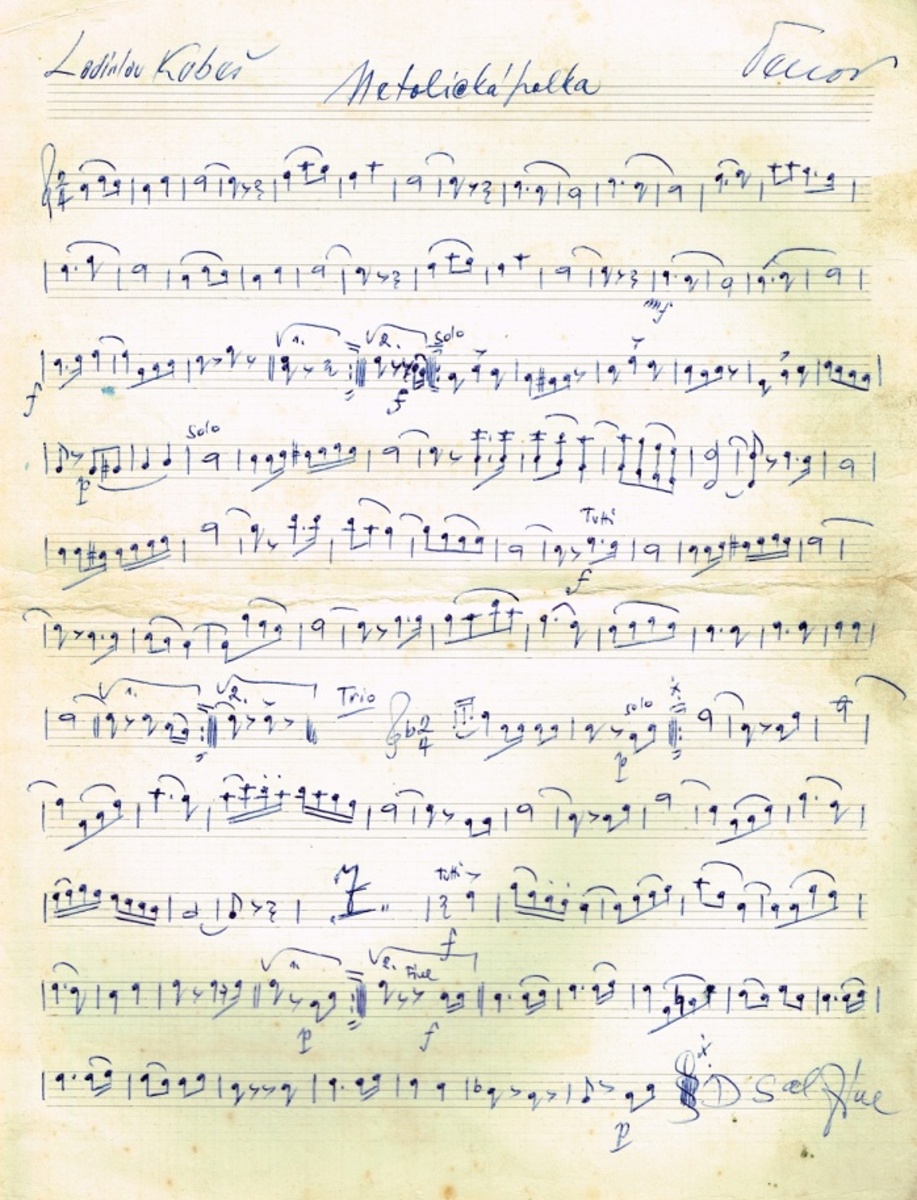 Ladislav Kubeš Netolická polka Tenor
2 4
mf
f 1. 2. f Solo
p Solo
Tutti f
1. 2. Trio 2 4 p solo
7 tutti f
1. p 2. Fine f
p D S al Fine